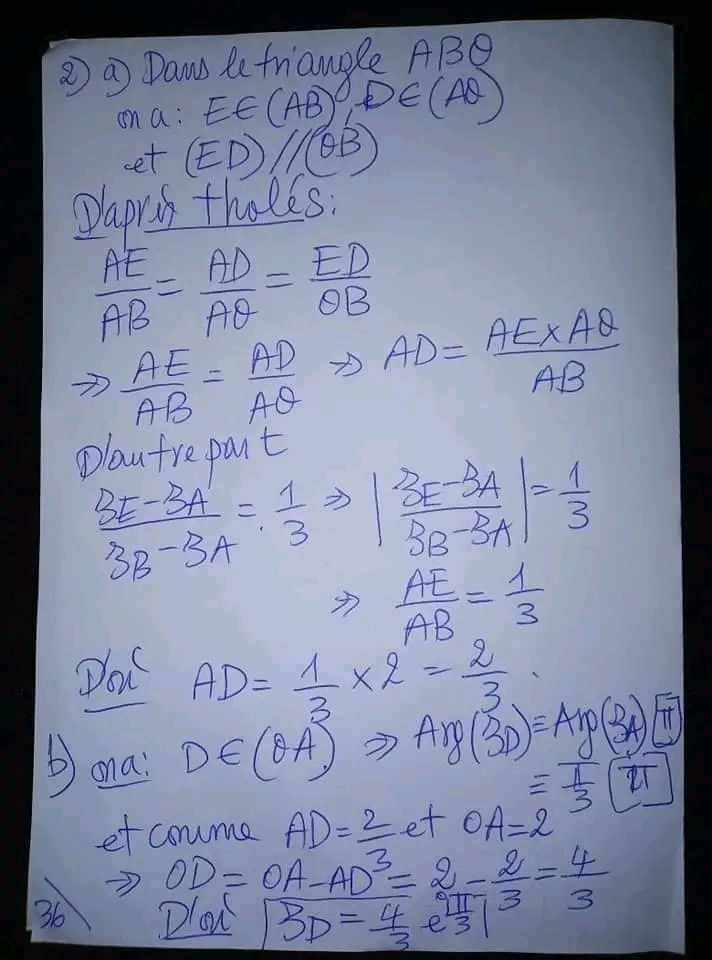 2) a) Dans le triangle ABO
on a: E∈(AB), D∈(AO)
et (ED)//(OB)
D'après tholés:
AE/AB = AD/AO = ED/OB
⇒ AE/AB = AD/AO ⇒ AD = AE×AO/AB
D'autre part
(zE-zA)/(zB-zA) = 1/3 ⇒ |(zE-zA)/(zB-zA)| = 1/3
⇒ AE/AB = 1/3
D'où AD = 1/3 × 2 = 2/3.
b) on a: D∈(OA) ⇒ Arg(zD) ≡ Arg(zA) [π]
≡ π/3 [π]
et comme AD = 2/3 et OA = 2
⇒ OD = OA-AD = 2 - 2/3 = 4/3
36 D'où zD = 4/3 e^{iπ/3}